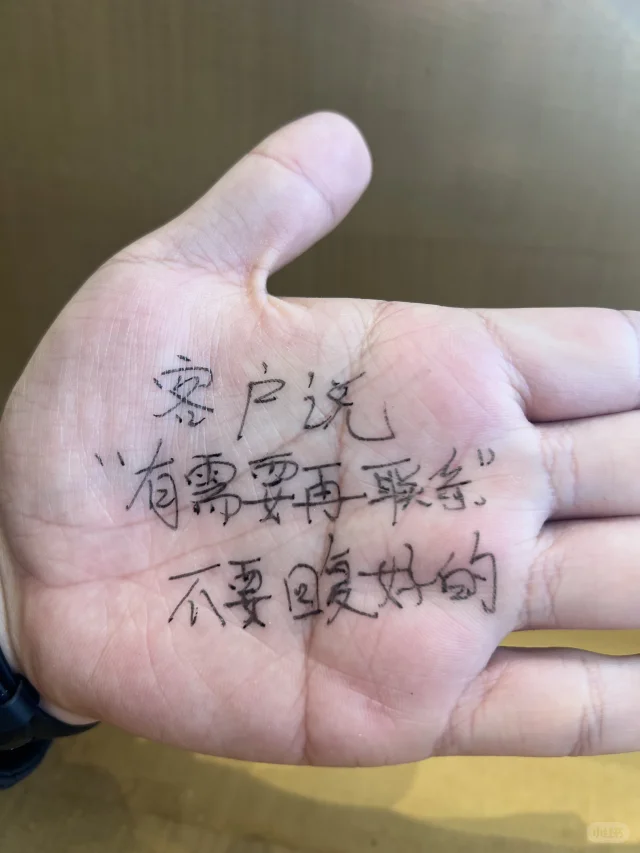 客户说
“有需要再联系”
不要回复好的
小红书